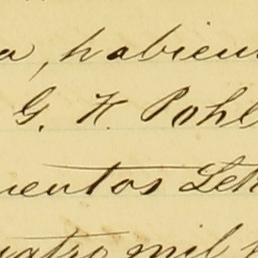 a, habien
G. H. Pohl
mentos Set
uatro mil